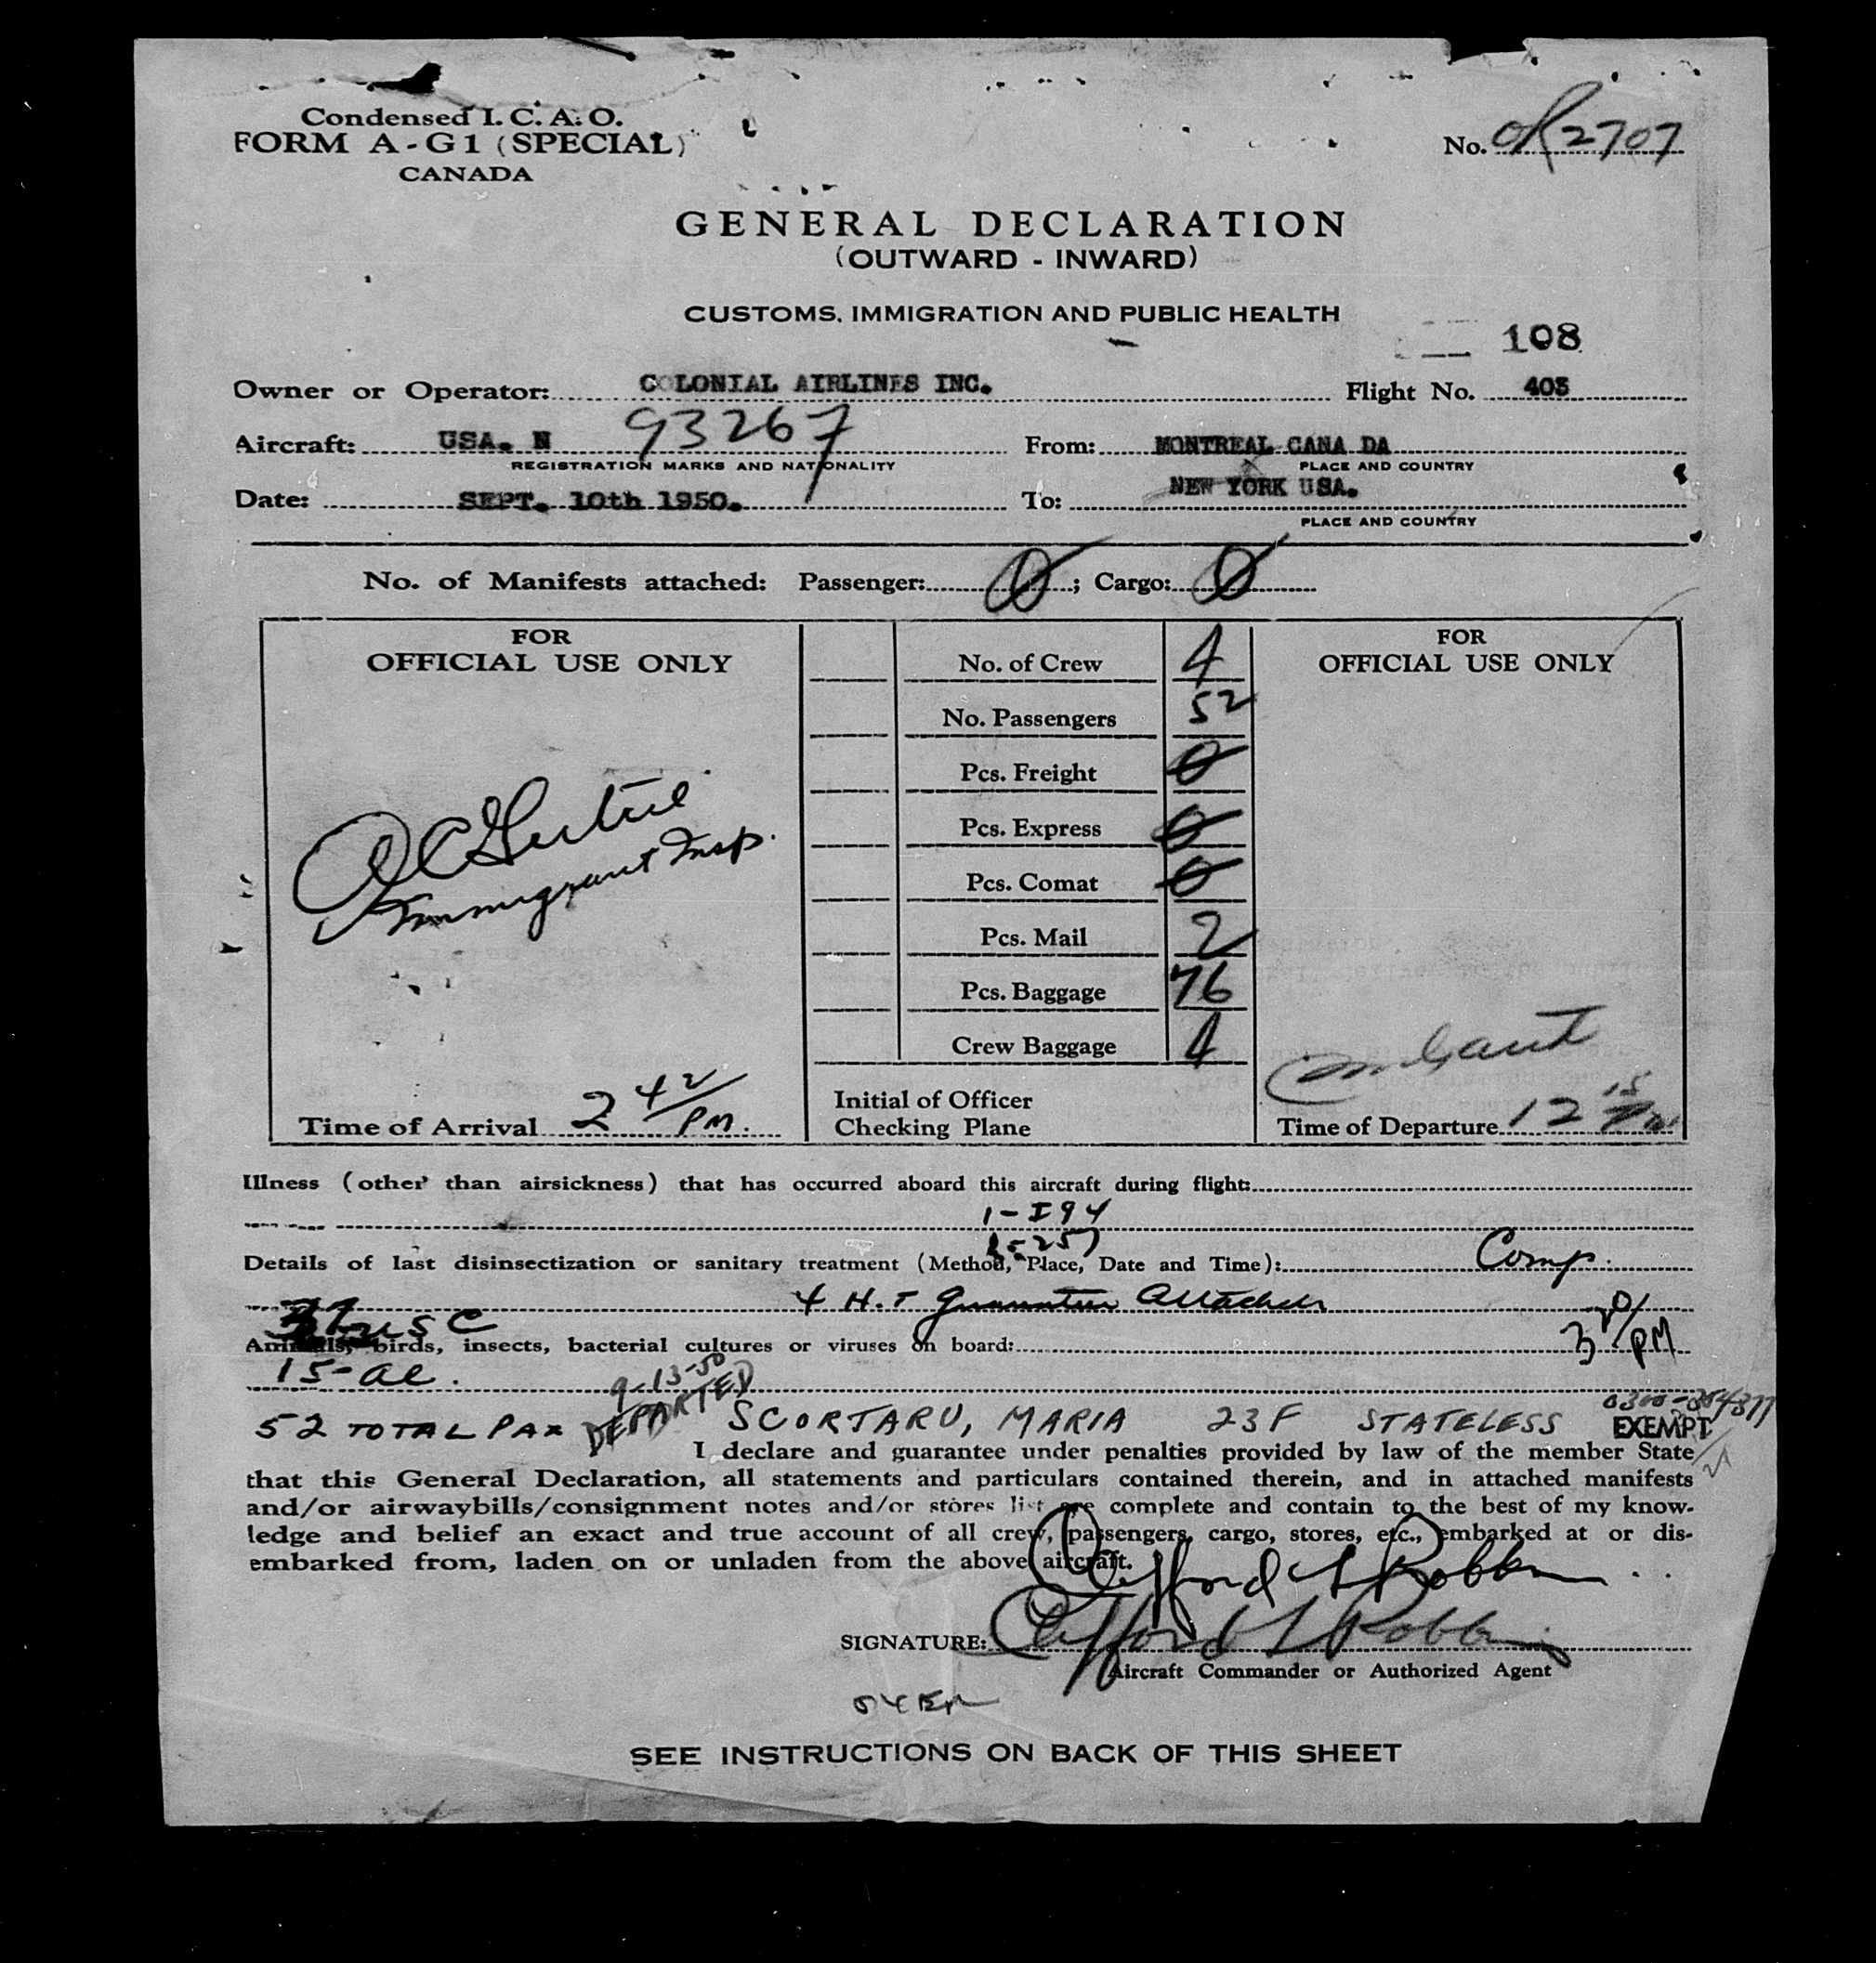 Condensed I. C. A. O.
FORM A - G 1 (SPECIAL)
CANADA
No. OR2707
GENERAL DECLARATION
(OUTWARD - INWARD)
CUSTOMS, IMMIGRATION AND PUBLIC HEALTH
108
Owner or Operator: COLONIAL AIRLINES INC. Flight No. 403
Aircraft: USA. N 93267 From: MONTREAL CANA DA
REGISTRATION MARKS AND NATIONALITY PLACE AND COUNTRY
Date: SEPT. 10th 1950. To: NEW YORK USA.
PLACE AND COUNTRY
No. of Manifests attached: Passenger: 0; Cargo: 0
FOR
OFFICIAL USE ONLY
Immigrant Insp.
Time of Arrival 2 42/PM.
No. of Crew 4
No. Passengers 52
Pcs. Freight 0
Pcs. Express 0
Pcs. Comat 0
Pcs. Mail 2
Pcs. Baggage 76
Crew Baggage 4
Initial of Officer
Checking Plane
FOR
OFFICIAL USE ONLY
Time of Departure 12 15
Illness (other than airsickness) that has occurred aboard this aircraft during flight:
1-I94
Details of last disinsectization or sanitary treatment (Method, Place, Date and Time): Comp.
257
4 H.T Attached
37 USC
Animals, birds, insects, bacterial cultures or viruses on board: 3 20/PM
15-al.
9-13-50
DEPARTED
52 TOTAL PAX SCORTARU, MARIA 23F STATELESS
EXEMPT
I declare and guarantee under penalties provided by law of the member State
that this General Declaration, all statements and particulars contained therein, and in attached manifests
and/or airwaybills/consignment notes and/or stores list are complete and contain to the best of my know-
ledge and belief an exact and true account of all crew, passengers, cargo, stores, etc., embarked at or dis-
embarked from, laden on or unladen from the above aircraft.
Clifford L Robbins
SIGNATURE: Clifford L Robbins
Aircraft Commander or Authorized Agent
SEE INSTRUCTIONS ON BACK OF THIS SHEET